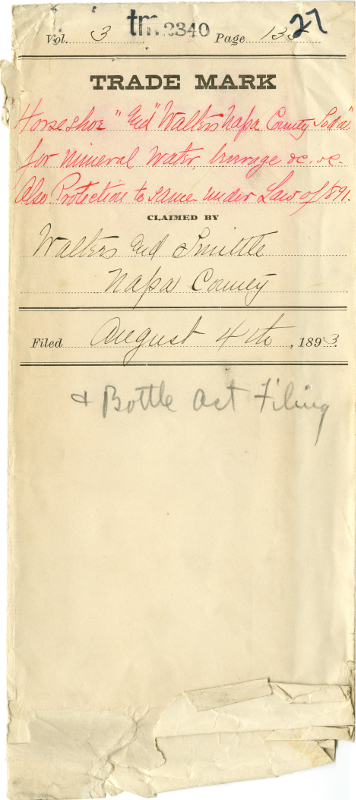 27
Vol. 3 tm 2340 Page 133
TRADE MARK
Horseshoe "And" Walters Napa County Soda"
for Mineral Water, &c, &c.
Also Protection to same under Law of 1891.
CLAIMED BY
Walters And Smittle
Napa County
Filed August 4th, 1893
& Bottle Act Filing